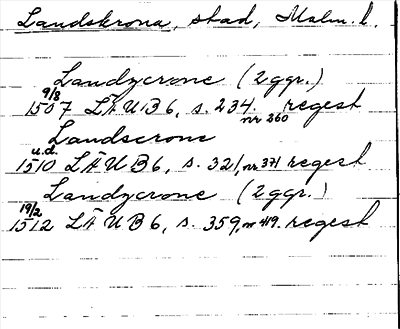 Landskrona, stad, Malm. l.
Landzcrone (2 ggr.)
9/8 1507 LÄUB 6, s. 234. nr 260 regest
Landscrone
u.d. 1510 LÄUB 6, s. 321, nr 371 regest
Landzcrone (2 ggr.)
19/2 1512 LÄUB 6, s. 359, nr 419. regest